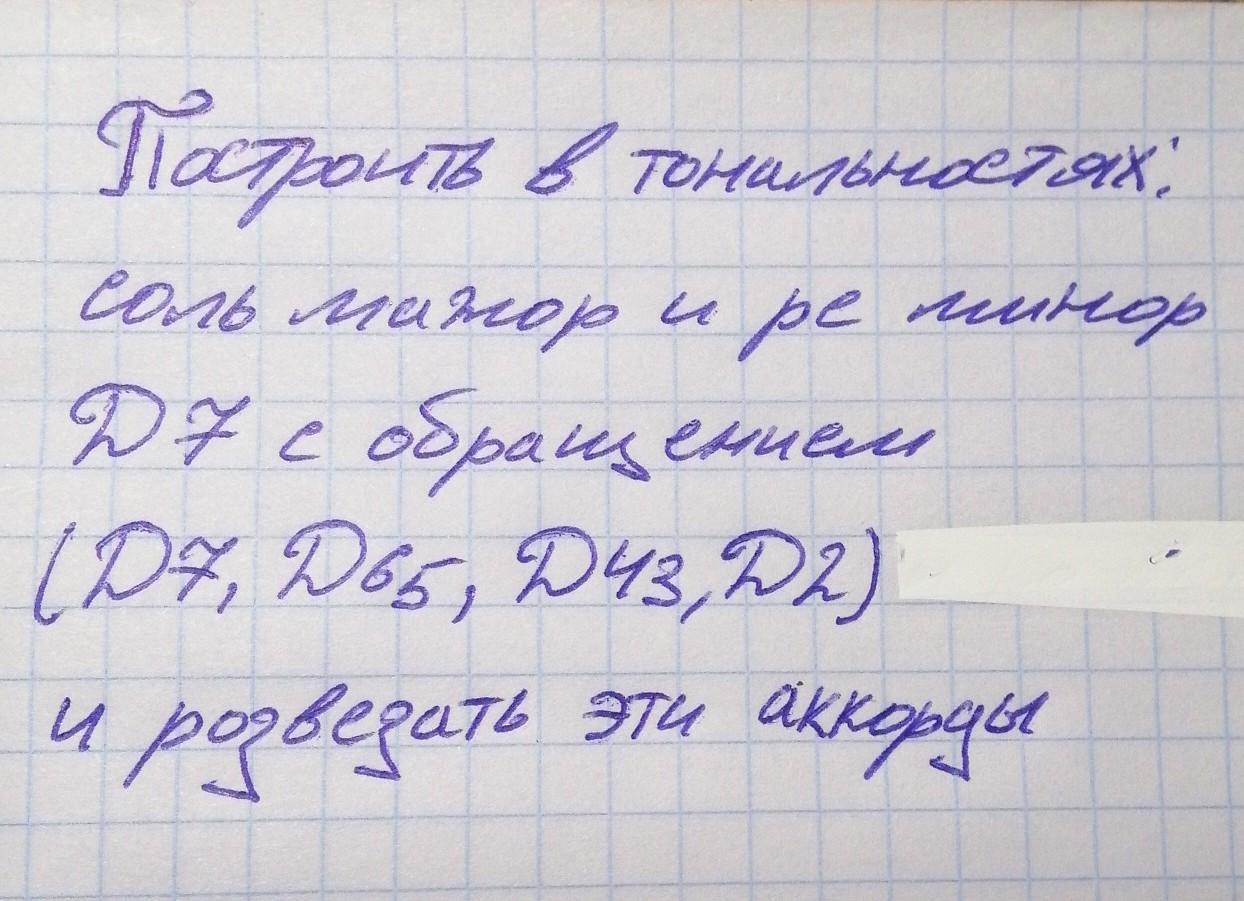 Построить в тональностях:
соль мажор и ре минор
D7 с обращением
(D7, D65, D43, D2)
и розведать эти аккорды